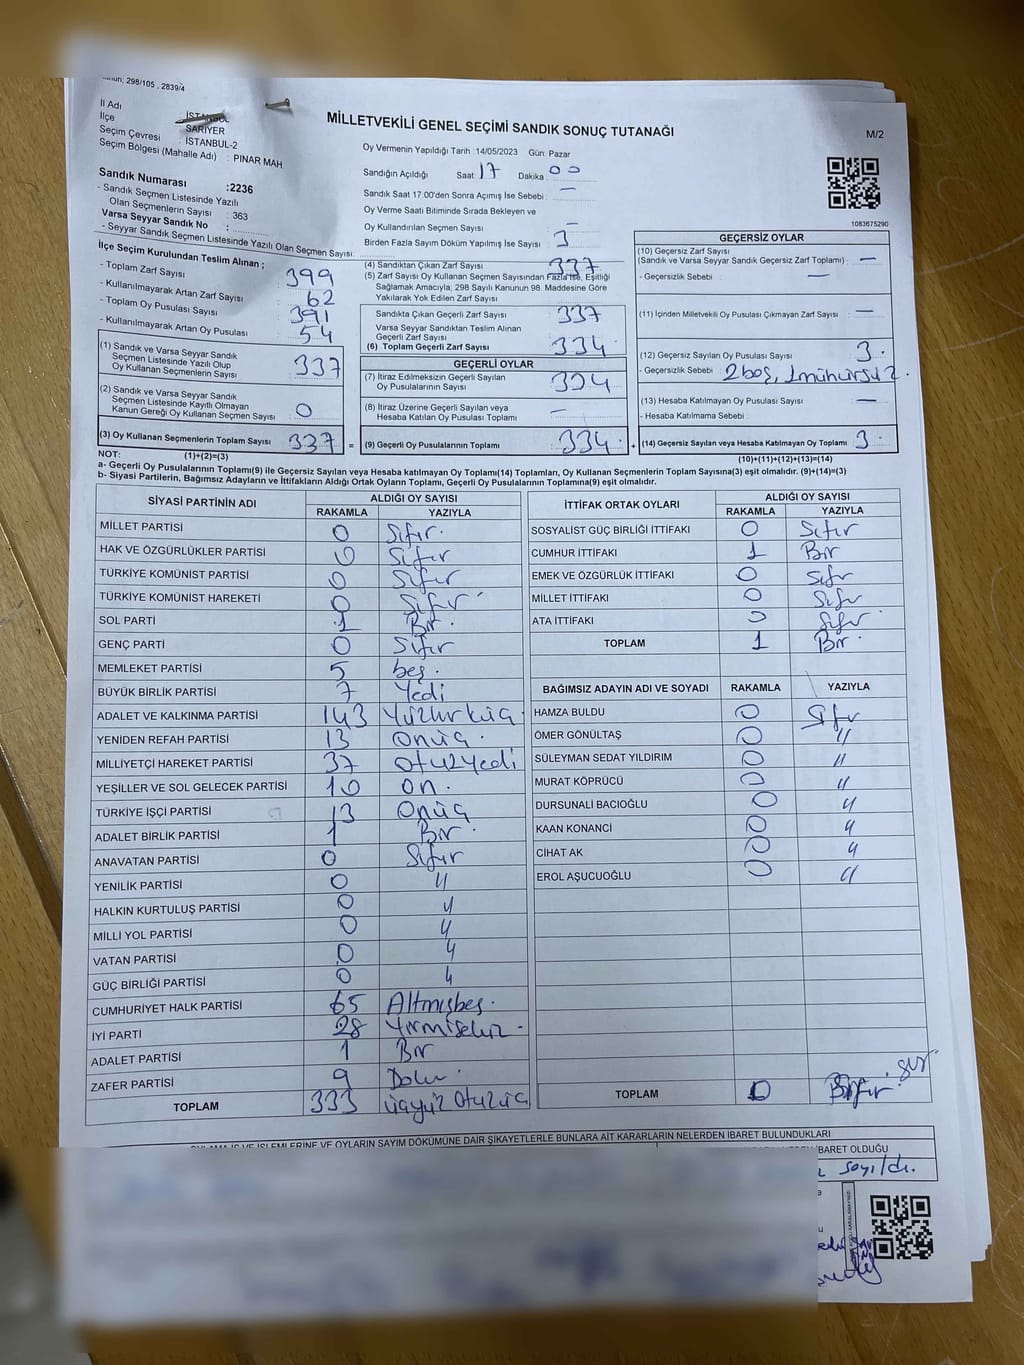 Kanun: 298/105 , 2839/4
MİLLETVEKİLİ GENEL SEÇİMİ SANDIK SONUÇ TUTANAĞI
M/2
İl Adı İSTANBUL
İlçe SARIYER
Seçim Çevresi : İSTANBUL-2
Seçim Bölgesi (Mahalle Adı) : PINAR MAH
Sandık Numarası :2236
- Sandık Seçmen Listesinde Yazılı
Olan Seçmenlerin Sayısı : 363
Varsa Seyyar Sandık No :
- Seyyar Sandık Seçmen Listesinde Yazılı Olan Seçmen Sayısı:
İlçe Seçim Kurulundan Teslim Alınan ;
- Toplam Zarf Sayısı : 399
- Kullanılmayarak Artan Zarf Sayısı : 62
- Toplam Oy Pusulası Sayısı : 391
- Kullanılmayarak Artan Oy Pusulası : 54
(1) Sandık ve Varsa Seyyar Sandık
Seçmen Listesinde Yazılı Olup
Oy Kullanan Seçmenlerin Sayısı : 337
(2) Sandık ve Varsa Seyyar Sandık
Seçmen Listesinde Kayıtlı Olmayan
Kanun Gereği Oy Kullanan Seçmen Sayısı : 0
(3) Oy Kullanan Seçmenlerin Toplam Sayısı : 337 =
Oy Vermenin Yapıldığı Tarih :14/05/2023 Gün: Pazar
Sandığın Açıldığı Saat: 17 Dakika: 00
Sandık Saat 17:00'den Sonra Açımış İse Sebebi : —
Oy Verme Saati Bitiminde Sırada Bekleyen ve
Oy Kullandırılan Seçmen Sayısı : —
Birden Fazla Sayım Döküm Yapılmış İse Sayısı : 3
(4) Sandıktan Çıkan Zarf Sayısı : 337
(5) Zarf Sayısı Oy Kullanan Seçmen Sayısından Fazla İse, Eşitliği
Sağlamak Amacıyla, 298 Sayılı Kanunun 98. Maddesine Göre
Yakılarak Yok Edilen Zarf Sayısı
Sandıkta Çıkan Geçerli Zarf Sayısı : 337
Varsa Seyyar Sandıktan Teslim Alınan
Geçerli Zarf Sayısı
(6) Toplam Geçerli Zarf Sayısı : 334
GEÇERLİ OYLAR
(7) İtiraz Edilmeksizin Geçerli Sayılan
Oy Pusulalarının Sayısı : 324
(8) İtiraz Üzerine Geçerli Sayılan veya
Hesaba Katılan Oy Pusulası Toplamı : —
(9) Geçerli Oy Pusulalarının Toplamı : 334 +
1083675290
GEÇERSİZ OYLAR
(10) Geçersiz Zarf Sayısı
(Sandık ve Varsa Seyyar Sandık Geçersiz Zarf Toplamı) : —
- Geçersizlik Sebebi : —
(11) İçinden Milletvekili Oy Pusulası Çıkmayan Zarf Sayısı : —
(12) Geçersiz Sayılan Oy Pusulası Sayısı : 3.
- Geçersizlik Sebebi : 2 boş, 1 mühürsüz.
(13) Hesaba Katılmayan Oy Pusulası Sayısı : —
- Hesaba Katılmama Sebebi :
(14) Geçersiz Sayılan veya Hesaba Katılmayan Oy Toplamı : 3.
NOT: (1)+(2)=(3) (10)+(11)+(12)+(13)=(14)
a- Geçerli Oy Pusulalarının Toplamı(9) ile Geçersiz Sayılan veya Hesaba katılmayan Oy Toplamı(14) Toplamları, Oy Kullanan Seçmenlerin Toplam Sayısına(3) eşit olmalıdır. (9)+(14)=(3)
b- Siyasi Partilerin, Bağımsız Adayların ve İttifakların Aldığı Ortak Oyların Toplamı, Geçerli Oy Pusulalarının Toplamına(9) eşit olmalıdır.
SİYASİ PARTİNİN ADI ALDIĞI OY SAYISI
RAKAMLA YAZIYLA
MİLLET PARTİSİ 0 Sıfır.
HAK VE ÖZGÜRLÜKLER PARTİSİ 0 Sıfır
TÜRKİYE KOMÜNİST PARTİSİ 0 Sıfır
TÜRKİYE KOMÜNİST HAREKETİ 0 Sıfır
SOL PARTİ 1 Bir.
GENÇ PARTİ 0 Sıfır
MEMLEKET PARTİSİ 5 beş.
BÜYÜK BİRLİK PARTİSİ 7 Yedi
ADALET VE KALKINMA PARTİSİ 143 Yüzkırküç.
YENİDEN REFAH PARTİSİ 13 Onüç.
MİLLİYETÇİ HAREKET PARTİSİ 37 Otuzyedi
YEŞİLLER VE SOL GELECEK PARTİSİ 10 On.
TÜRKİYE İŞÇİ PARTİSİ 13 Onüç
ADALET BİRLİK PARTİSİ 1 Bir.
ANAVATAN PARTİSİ 0 Sıfır
YENİLİK PARTİSİ 0 "
HALKIN KURTULUŞ PARTİSİ 0 "
MİLLİ YOL PARTİSİ 0 "
VATAN PARTİSİ 0 "
GÜÇ BİRLİĞİ PARTİSİ 0 "
CUMHURİYET HALK PARTİSİ 65 Altmışbeş.
İYİ PARTİ 28 Yirmisekiz.
ADALET PARTİSİ 1 Bir
ZAFER PARTİSİ 9 Dokuz.
TOPLAM 333 üçyüz otuzüç
İTTİFAK ORTAK OYLARI ALDIĞI OY SAYISI
RAKAMLA YAZIYLA
SOSYALİST GÜÇ BİRLİĞİ İTTİFAKI 0 Sıfır
CUMHUR İTTİFAKI 1 Bir
EMEK VE ÖZGÜRLÜK İTTİFAKI 0 Sıfır
MİLLET İTTİFAKI 0 Sıfır
ATA İTTİFAKI 0 Sıfır
TOPLAM 1 Bir
BAĞIMSIZ ADAYIN ADI VE SOYADI RAKAMLA YAZIYLA
HAMZA BULDU 0 Sıfır
ÖMER GÖNÜLTAŞ 0 "
SÜLEYMAN SEDAT YILDIRIM 0 "
MURAT KÖPRÜCÜ 0 "
DURSUNALİ BACIOĞLU 0 "
KAAN KONANCİ 0 "
CİHAT AK 0 "
EROL AŞUCUOĞLU 0 "
TOPLAM 0 Sıfır
İŞLEMLERİNE VE OYLARIN SAYIM DÖKÜMÜNE DAİR ŞİKAYETLERLE BUNLARA AİT KARARLARIN NELERDEN İBARET BULUNDUKLARI
İBARET OLDUĞU
sayıldı.